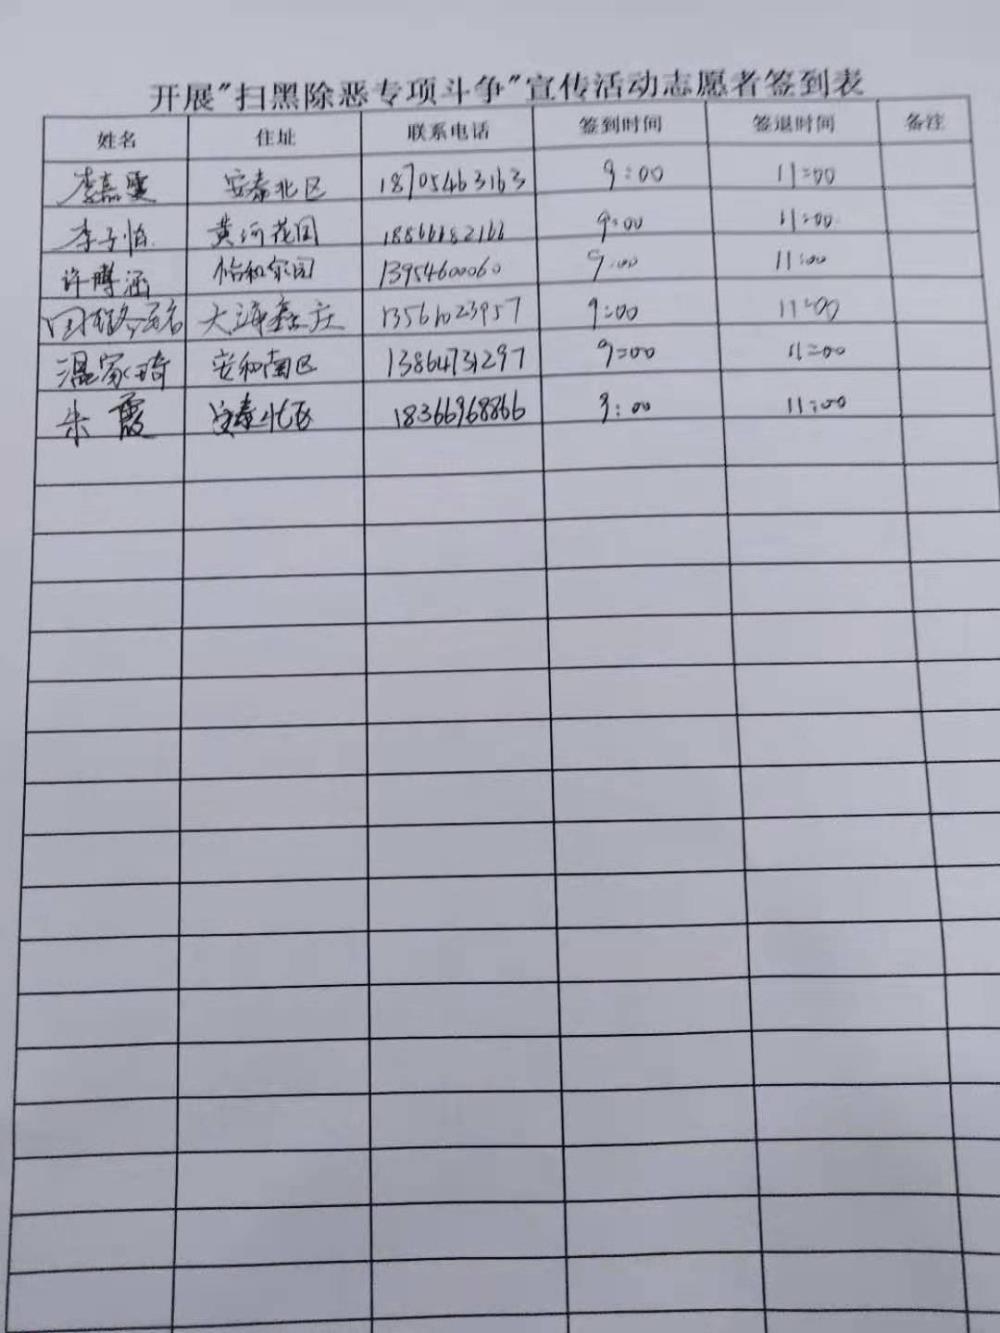 开展"扫黑除恶专项斗争"宣传活动志愿者签到表
姓名 住址 联系电话 签到时间 签退时间 备注
李嘉雯 安泰北区 18705463163 9:00 11:00
李子怡 黄河花园 18866682166 9:00 11:00
许博涵 怡和家园 13954600060 9:00 11:00
13561023957 9:00 11:00
温家琦 安和南区 13864731297 9:00 11:00
朱霞 安泰北区 18366968866 9:00 11:00